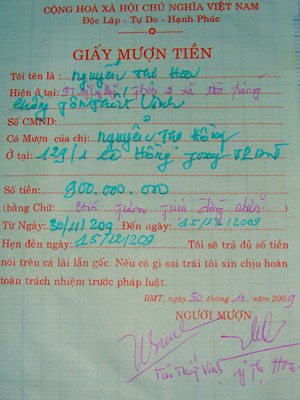 CỘNG HOÀ XÃ HỘI CHỦ NGHĨA VIỆT NAM
Độc Lập - Tự Do - Hạnh Phúc
GIẤY MƯỢN TIỀN
Tôi tên là : Nguyễn Thị Hoa
Hiện ở tại: xã
chồng Vinh
Số CMND:
Có Mượn của chị: Nguyễn Thị Hồng
Ở tại: 129/1 Lê Hồng Phong TP. BMT
Số tiền: 900.000.000
(bằng Chữ: chín trăm triệu đồng chẵn)
Từ Ngày: 30/11/209 Đến ngày: 15/12/2009
Hẹn đến ngày: 15/12/2009 Tôi sẽ trả đủ số tiền
nói trên cả lãi lẫn gốc. Nếu có gì sai trái tôi xin chịu hoàn
toàn trách nhiệm trước pháp luật.
BMT, ngày 30 tháng 11 năm 2009
NGƯỜI MƯỢN
Vinh Ng Thị Hoa